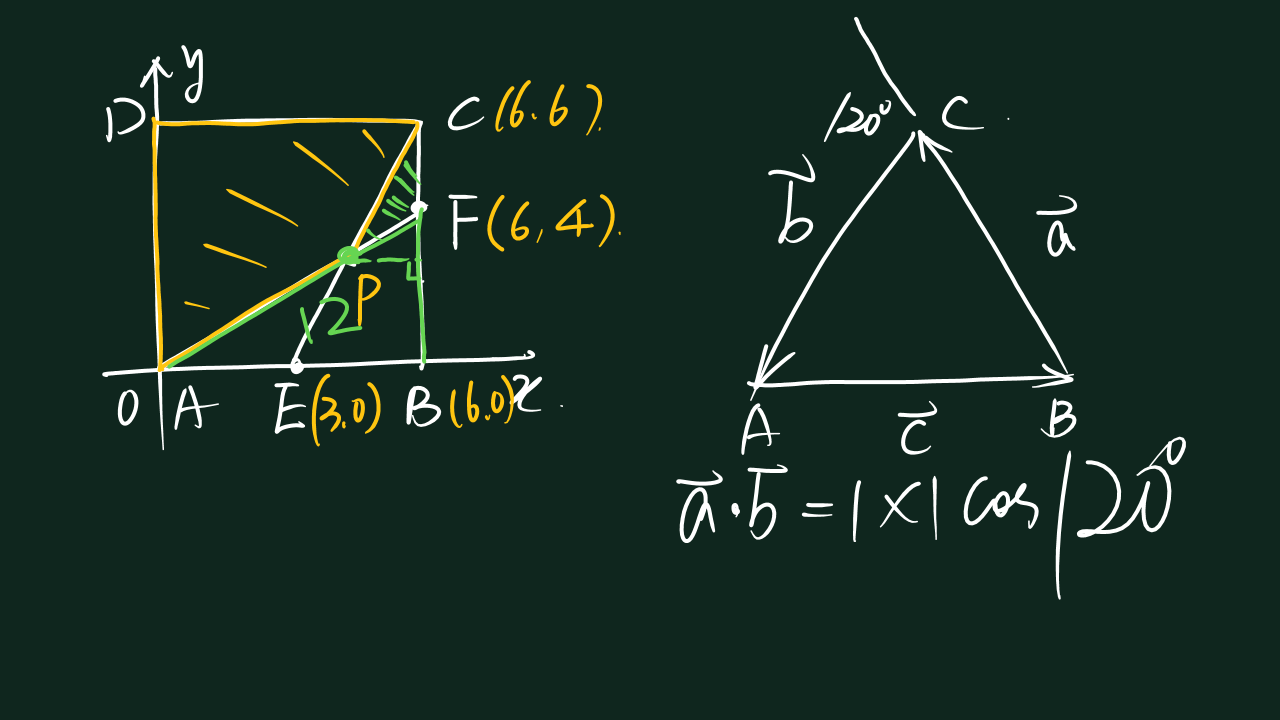 y
D
C (6.6).
F (6,4).
P
×2
O A E(3.0) B(6.0) x.
120° C
b⃗
a⃗
A c⃗ B
a⃗·b⃗ = 1×1 cos120°